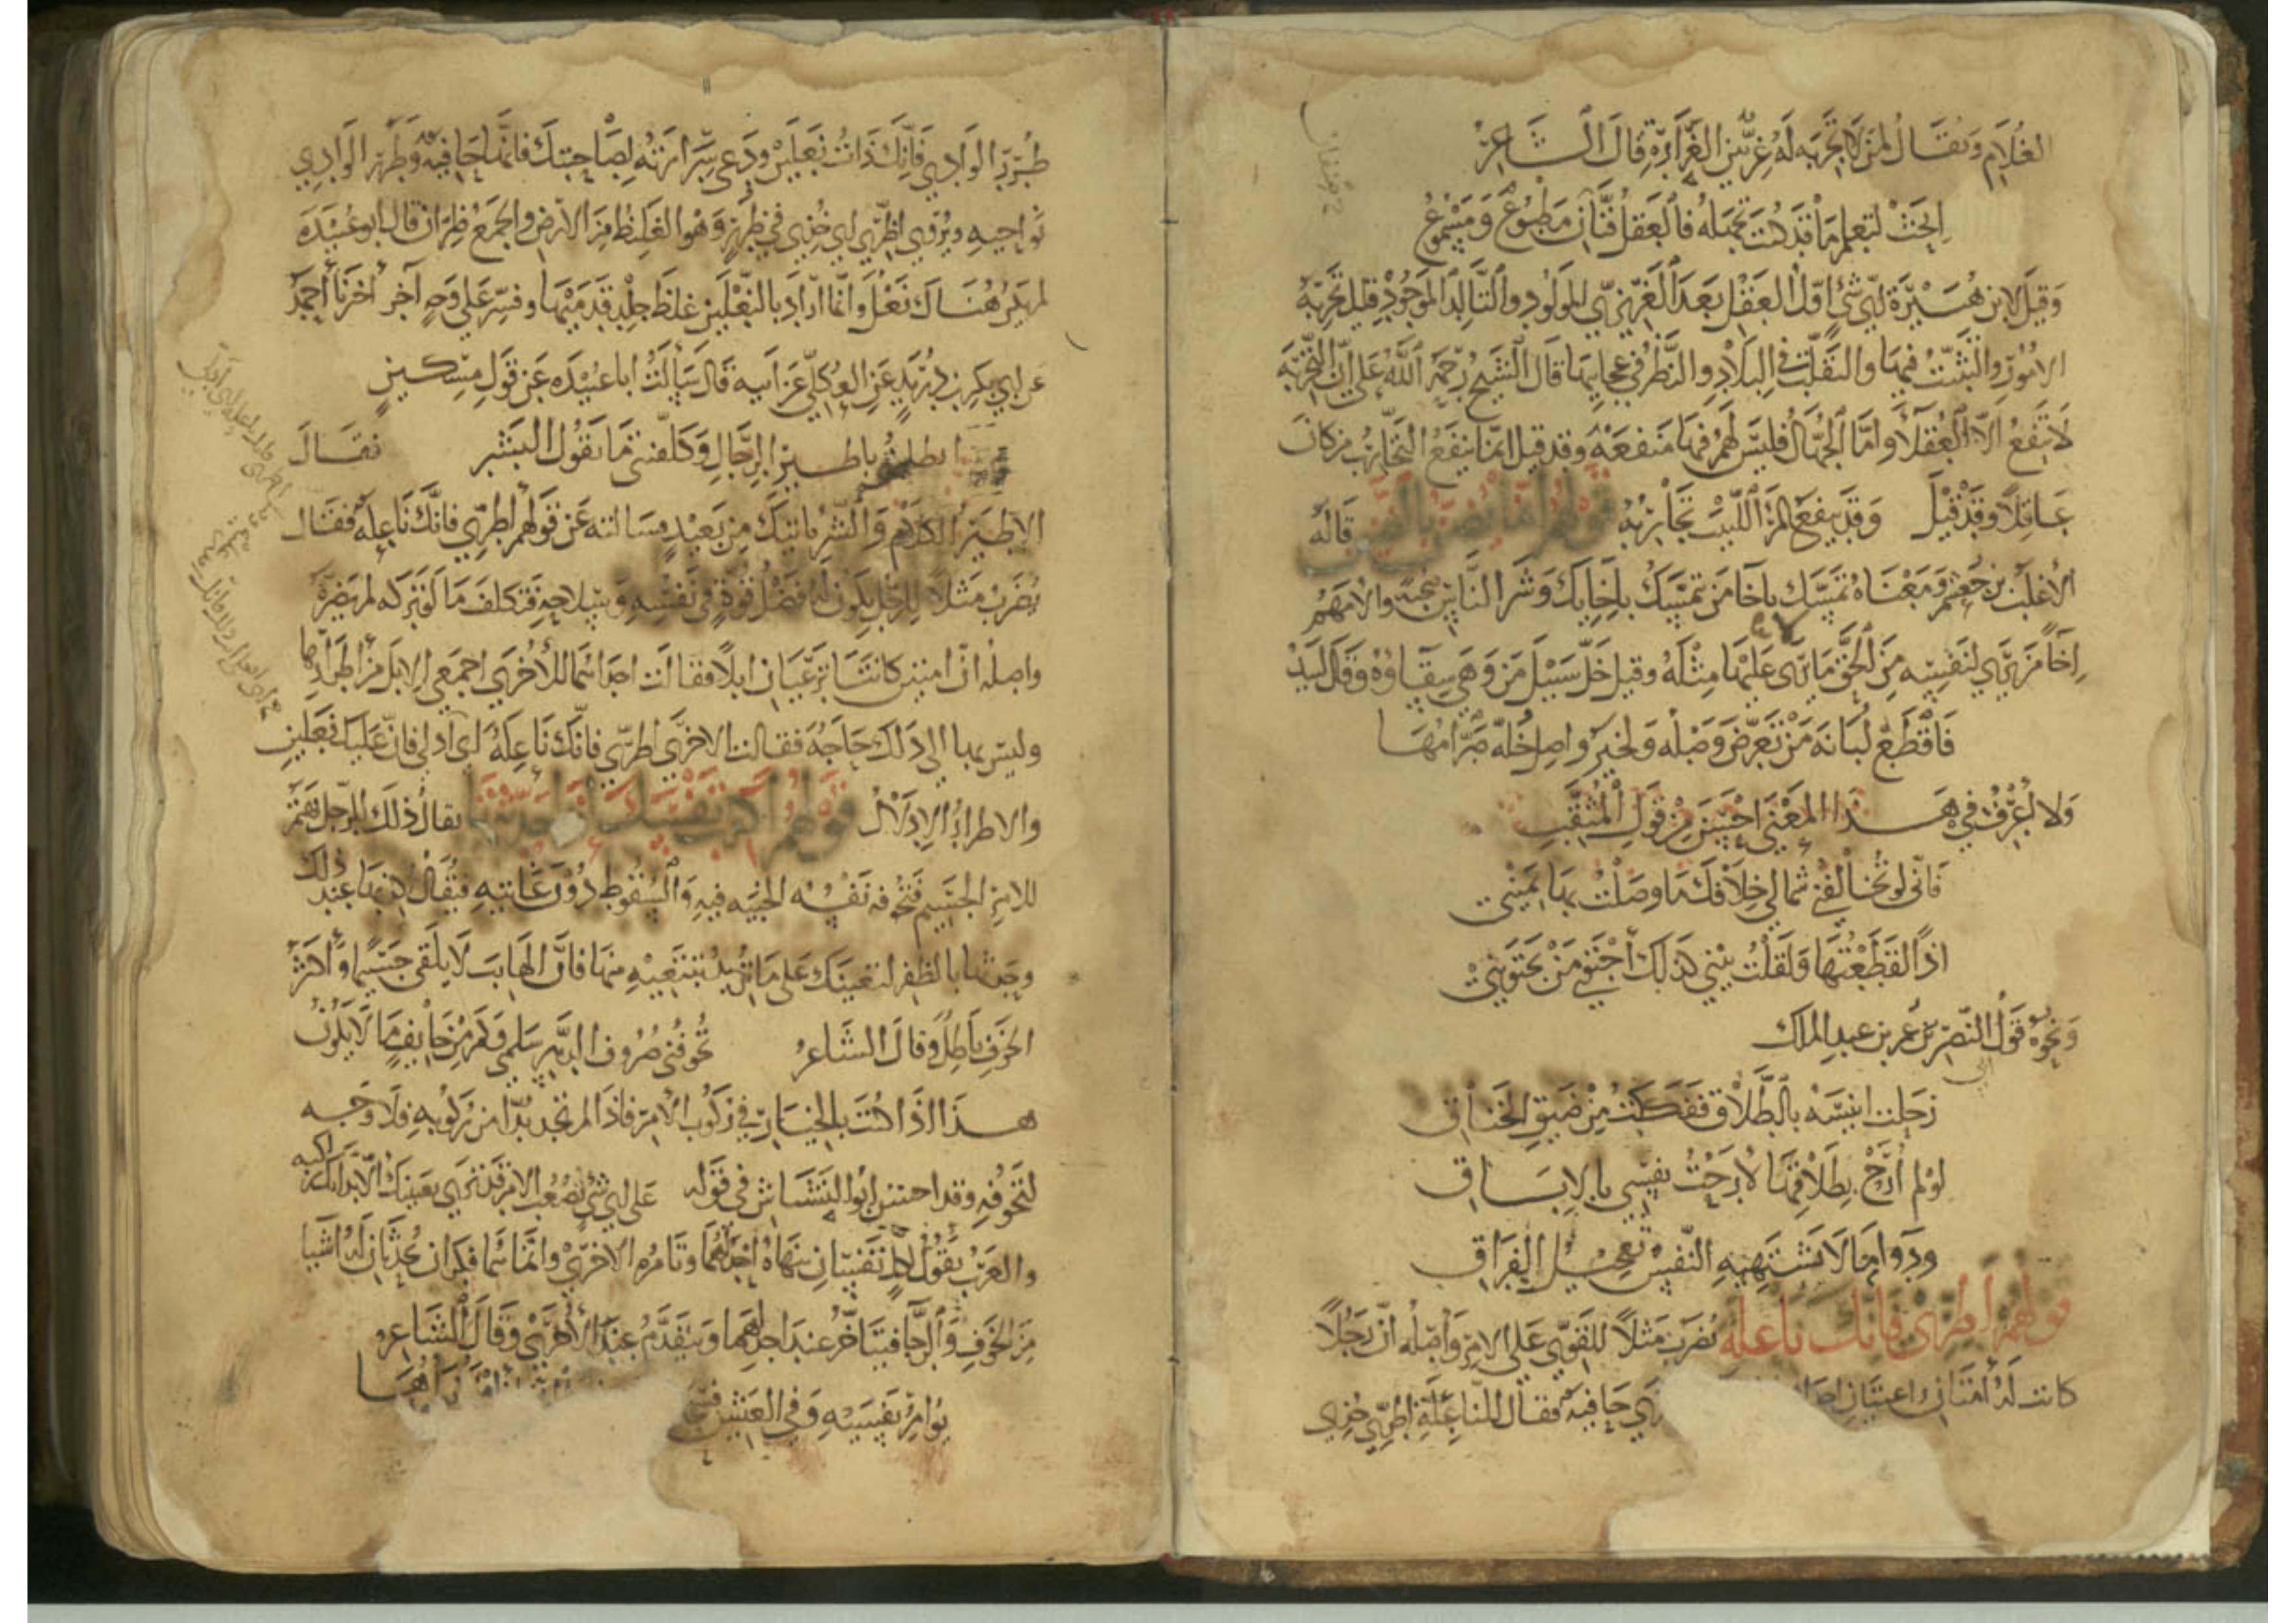 الغلام ويقال لمن لا تجربة له غر بين الغرارة قال الشاعر
ابحث لتعلم ما قد كنت تجهله فالعقل فنان مطبوع ومسموع
وقيل لابن هبيرة اي شيء اول العقل بعد الغريزي المولود والتالد الموجود قيل تجربة
الامور والتثبت فيها والتقلب في البلاد والنظر في عجايبها قال الشيخ رحمه الله على ان التجربة
لا تنفع الا العقلاء واما الجهال فليس لهم فيها منفعة وقد قيل انما ينفع التجارب من كان
عاقلا وقد قيل وقد ينفع المرء اللبيب تجاربه قولهم انما يضن بالضنين قاله
الاغلب بن جعشم ومعناه تمسك باخا من تمسك باخايك وشر الناس صحبة والامهم
اخاء من يرى لنفسه من الحق ما يرى عليها مثله وقيل خل سبيل من وهى سقاؤه وقال لبيد
فاقطع لبانة من تعرض وصله ولخير واصل خلة صرامها
ولا اعرف في هذا المعنى احسن من قول المثقب
فاني لو تخالفني شمالي خلافك ما وصلت بها يميني
اذا لقطعتها ولقلت بيني كذلك اجتوي من يجتويني
ونحوه قول النضر بن عمر بن عبد الملك
رحلت انيسه بالطلاق ففككت من ضيق الخناق
لو لم ارح بطلاقها لارحت نفسي بالاباق
ودواء ما لا تشتهيه النفس تعجيل الفراق
قولهم اطري فانك ناعلة يضرب مثلا للقوي على الامر واصله ان رجلا
كانت له امتان راعيتان حافية فقال للناعلة اطري خذي
طرر الوادي فانك ذات نعلين ودعي سرارته لصاحبتك فانها حافية وطرر الوادي
نواحيه ويروى اظري اي خذي في ظرر وهو الغليظ من الارض والجمع ظران قال ابو عبيدة
لم يكن هناك نعل وانما اراد بالنعلين غلظ جلد قدميها وفسر على وجه آخر اخبرنا احمد
عن ابي بكر بن دريد عن العكلي عن ابيه قال سالت ابا عبيدة عن قول مسكين
باطير الرجال وكلفتني ما يقول البشر فقال
الاطير الكلام والشر ياتيك من بعيد مسالته عن قولهم اطري فانك ناعلة فقال
يضرب مثلا للرجل يكون له فضل قوة في نفسه وسلاحه فتكلف ما لو تركه لم يضره
واصله ان امتين كانتا ترعيان ابلا فقالت احداهما للاخرى اجمعي الابل من اطرارها
وليس بها الى ذلك حاجة فقالت الاخرى اطري فانك ناعلة اي ادلي فان عليك نعلين
والاطرار الادلال قولهم اكذب نفسك اذا حدثتها يقال ذلك للرجل يهم
للامر الجسيم فتخوفه نفسه الخيبة فيه والسقوط دون غايته فيقال اكذبها عند ذلك
وحدثها بالظفر لتعينك على ما تريد تبتغيه منها فان الهايب لا يلقى جسيما واكثر
الخوف باطل وقال الشاعر تخوفني صروف الدهر سلمى وكم من خايف ما لا يكون
هذا اذا كنت بالخيار في ركوب الامر فاذا لم تجد بدا من ركوبه فلا وجه
لتخوفه وقد احسن ابو النشناش في قوله على اي شيء يصعب الامر قد ترى بعينك الا بد انك راكبه
والعرب تقول له نفسان تنهاه احداهما وتامره الاخرى وانما هما فكران يحدثان له اشيا
من الخوف والرجا فيتاخر عند احدهما ويتقدم عند الاخرى وقال الشاعر
يؤامر نفسيه وفي العيش